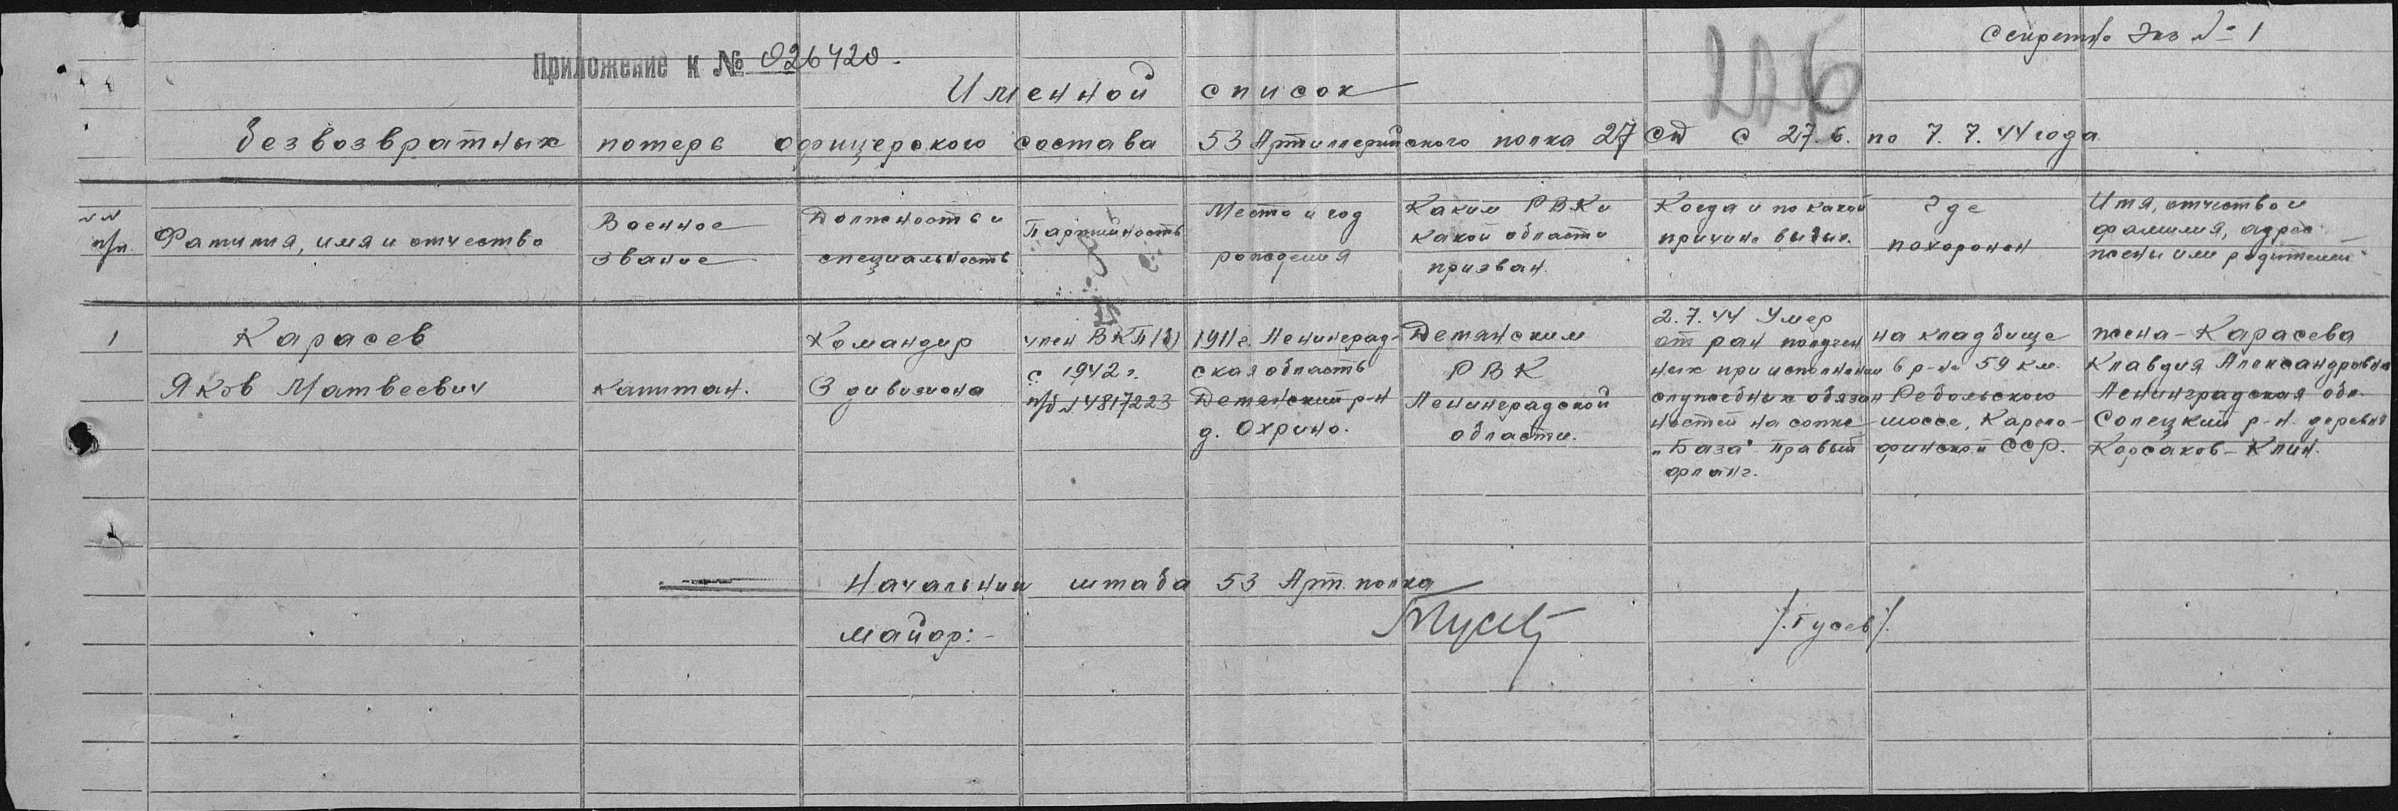 Секретно Экз № 1
Приложение к № 026420
226
Именной список
безвозвратных потерь офицерского состава 53 Артиллерийского полка 27 СД с 27.6. по 7.7.44 года
№№ п/п.
Фамилия, имя и отчество
Военное
звание
Должность и
специальность
Партийность
Место и год
рождения
Каким РВК и
какой области
призван.
Когда и по какой
причине выбыл.
Где
похоронен
Имя, отчество и
фамилия, адрес
жены или родителей
1
Карасев
Яков Матвеевич
капитан.
Командир
3 дивизиона
член ВКП(б)
с 1942 г.
п/б № 4817223
1911 г. Ленинград-
ская область
Демянский р-н
д. Охрино.
Демянским
РВК
Ленинградской
области.
2.7.44 Умер
от ран получен
ных при исполнении
служебных обязан
ностей на сопке
"База" правый
фланг.
на кладбище
в р-не 59 км.
Ребольского
шоссе, Карело-
финской ССР.
жена - Карасева
Клавдия Александровна
Ленинградская обл.
Солецкий р-н деревня
Корсаков-Клин.
Начальник штаба 53 Арт. полка
майор: -
Гусев
/.Гусев/.